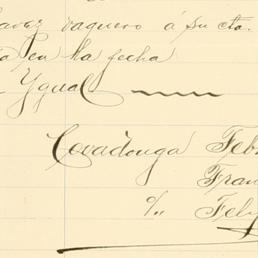 vaquero á su cta.
en la fecha
Ygual
Covadonga Feb
Fran
o/n Fely